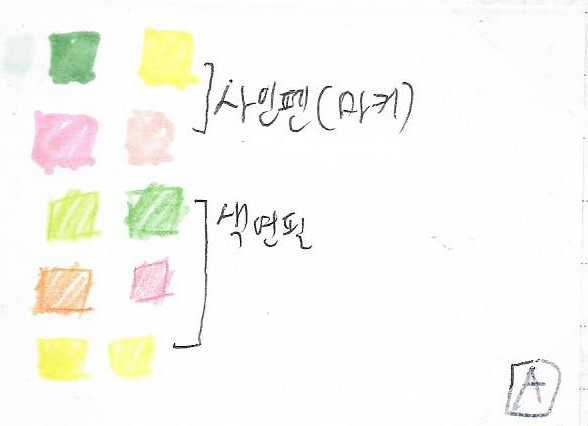 사인펜(마커)
색연필
A